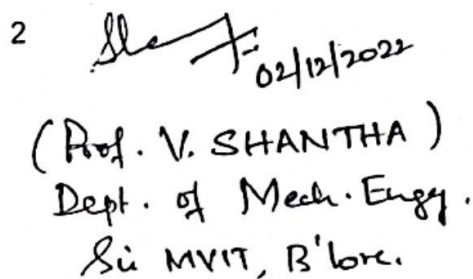 2
02/12/2022
(Prof. V. SHANTHA)
Dept. of Mech. Engg.
Sir MVIT, B'lore.